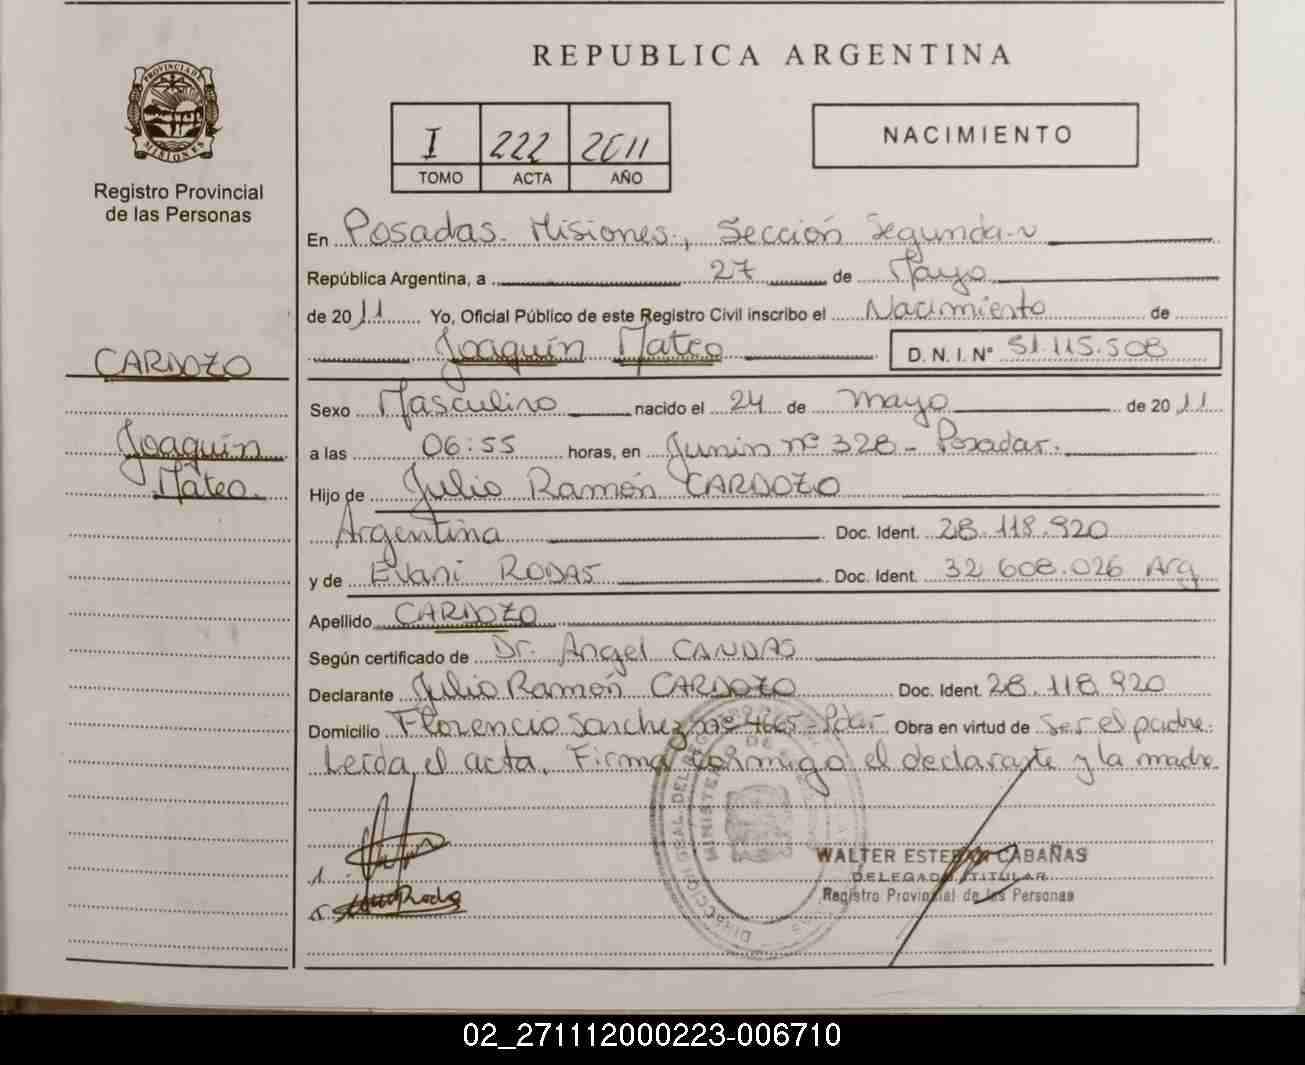 REPUBLICA ARGENTINA
PROVINCIA DE
MISIONES
Registro Provincial
de las Personas
I 222 2011
TOMO ACTA AÑO
NACIMIENTO
En Posadas. Misiones, Sección Segunda
República Argentina, a 27 de Mayo
de 2011 Yo, Oficial Público de este Registro Civil inscribo el Nacimiento de
Joaquín Mateo D.N.I. Nº 51.115.508
CARDOZO
Joaquín
Mateo
Sexo Masculino nacido el 24 de mayo de 2011
a las 06:55 horas, en Junin nº 328 - Posadas.
Hijo de Julio Ramón CARDOZO
Argentina Doc. Ident. 28.118.920
y de Evani RODAS Doc. Ident. 32 608.026 Arg
Apellido CARDOZO
Según certificado de Dr. Angel CANDAS
Declarante Julio Ramón CARDOZO Doc. Ident. 28.118.920
Domicilio Florencio Sanchez nº 4665 - Pdas Obra en virtud de ser el padre.
Leída el acta, Firma conmigo el declarante y la madre
WALTER ESTEBAN CABAÑAS
DELEGADO TITULAR
Registro Provincial de las Personas
02_271112000223-006710